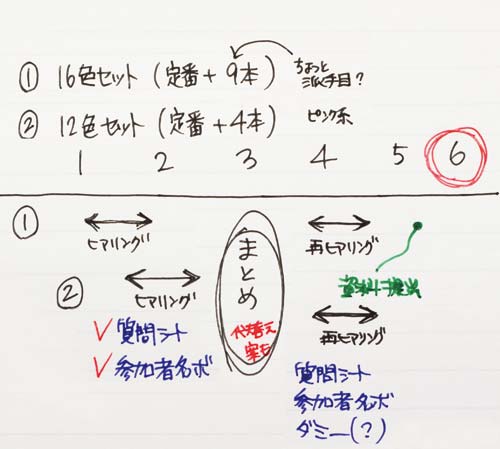 ① 16色セット (定番+9本) ちょっと派手目?
② 12色セット (定番+4本) ピンク系
1 2 3 4 5 6
①
ヒアリング
再ヒアリング
②
ヒアリング
まとめ
代替え
案も
資料に提出
再ヒアリング
✓ 質問シート
✓ 参加者名ボ
質問シート
参加者名ボ
ダミー(?)